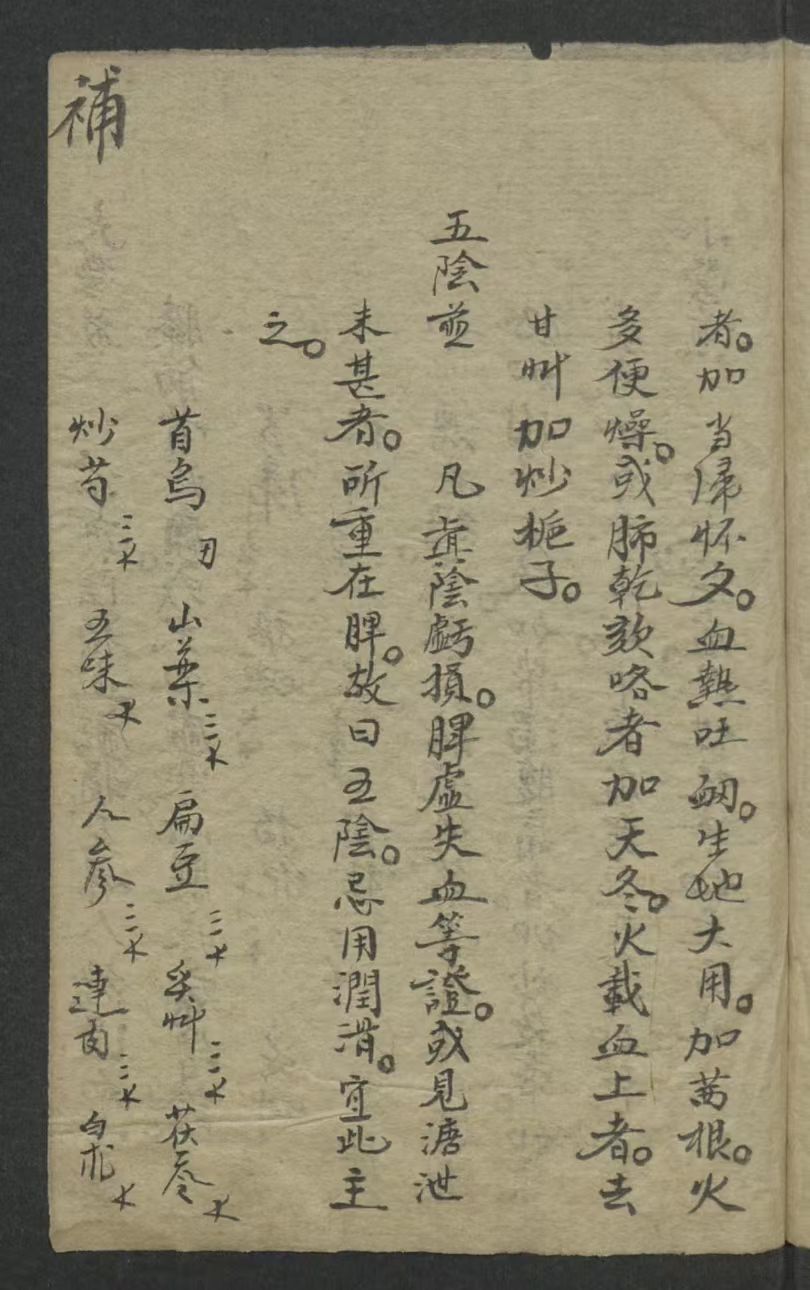 者。加当归怀夕。血熱吐衂。生地大用。加茜根。火
多便燥。或肺乾欬咯者加天冬。火載血上者。去
甘艸加炒梔子。
五陰前 凡真陰虧損。脾虛失血等證。或見溏泄
未甚者。所重在脾。故曰五陰。忌用潤滑。宜此主
之。
首烏 山藥 扁豆 炙艸 茯苓
炒芍 五味 人參 連肉 白朮
補